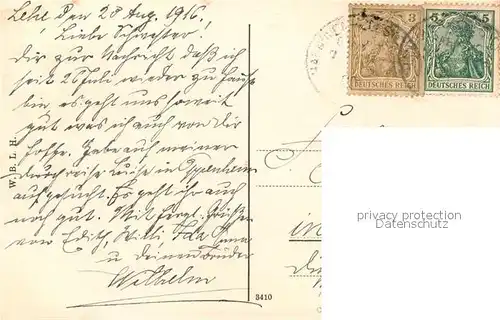 Lehe den 28 Aug. 1916.
Liebe Schwester!
Dir zur Nachricht daß ich
seit 26 Juli wieder zu Hause
bin, es geht uns soweit
gut was ich auch von dir
hoffe. Habe auf meiner
Durchreise Luise in
aufgesucht. Es geht ihr auch
noch gut. Mit herzl. Grüßen
von Edith, Willi, Ida
u deinem Bruder
Wilhelm
W. B. L. H.
3410
3 3
DEUTSCHES REICH
5 5
DEUTSCHES REICH
in
privacy protection
Datenschutz